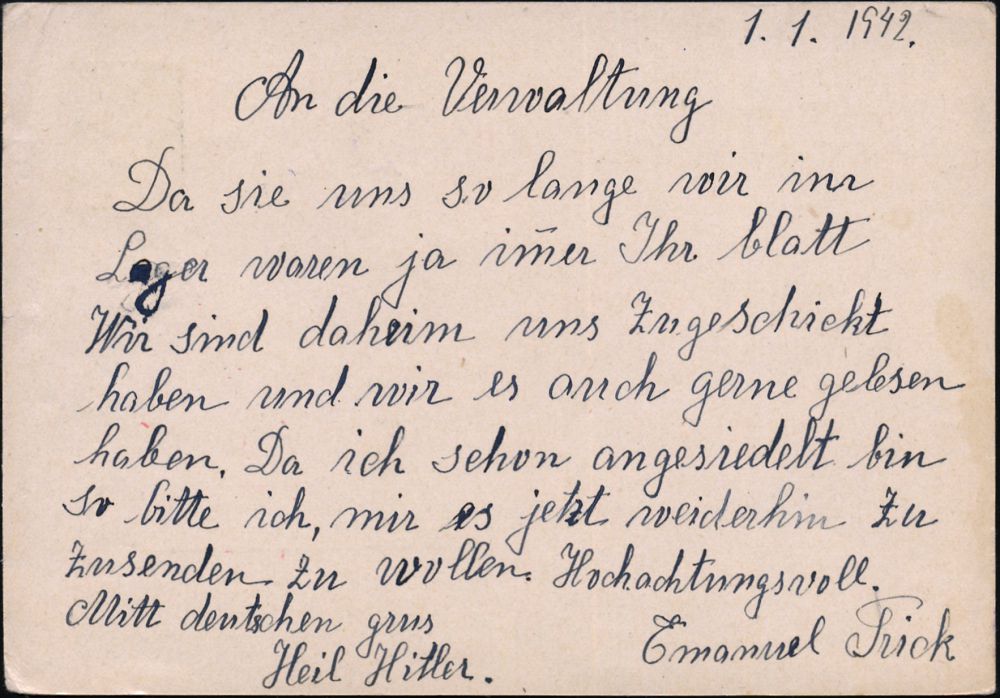 1. 1. 1942.
An die Verwaltung
Da sie uns so lange wir inr
Lager waren ja im̄er Ihr blatt
Wir sind daheim uns Zugeschickt
haben und wir es auch gerne gelesen
haben. Da ich schon angesiedelt bin
so bitte ich, mir es jetzt weiderhin Zu
Zusenden Zu wollen. Hochachtungsvoll.
Mitt deutschen grus
Emanuel Frick
Heil Hitler.